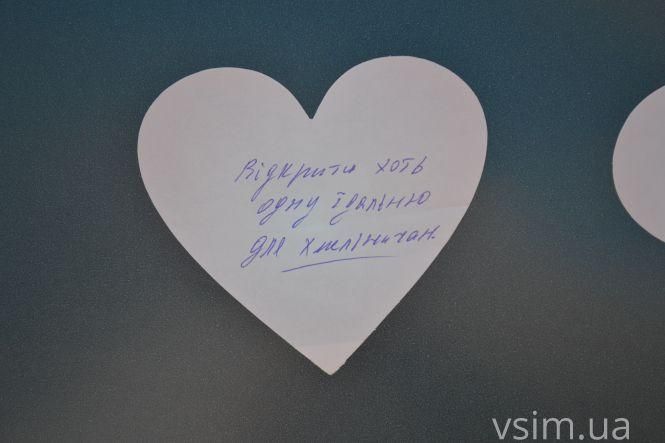 Відкрити хоть
одну їдальню
для хмельничан.
vsim.ua